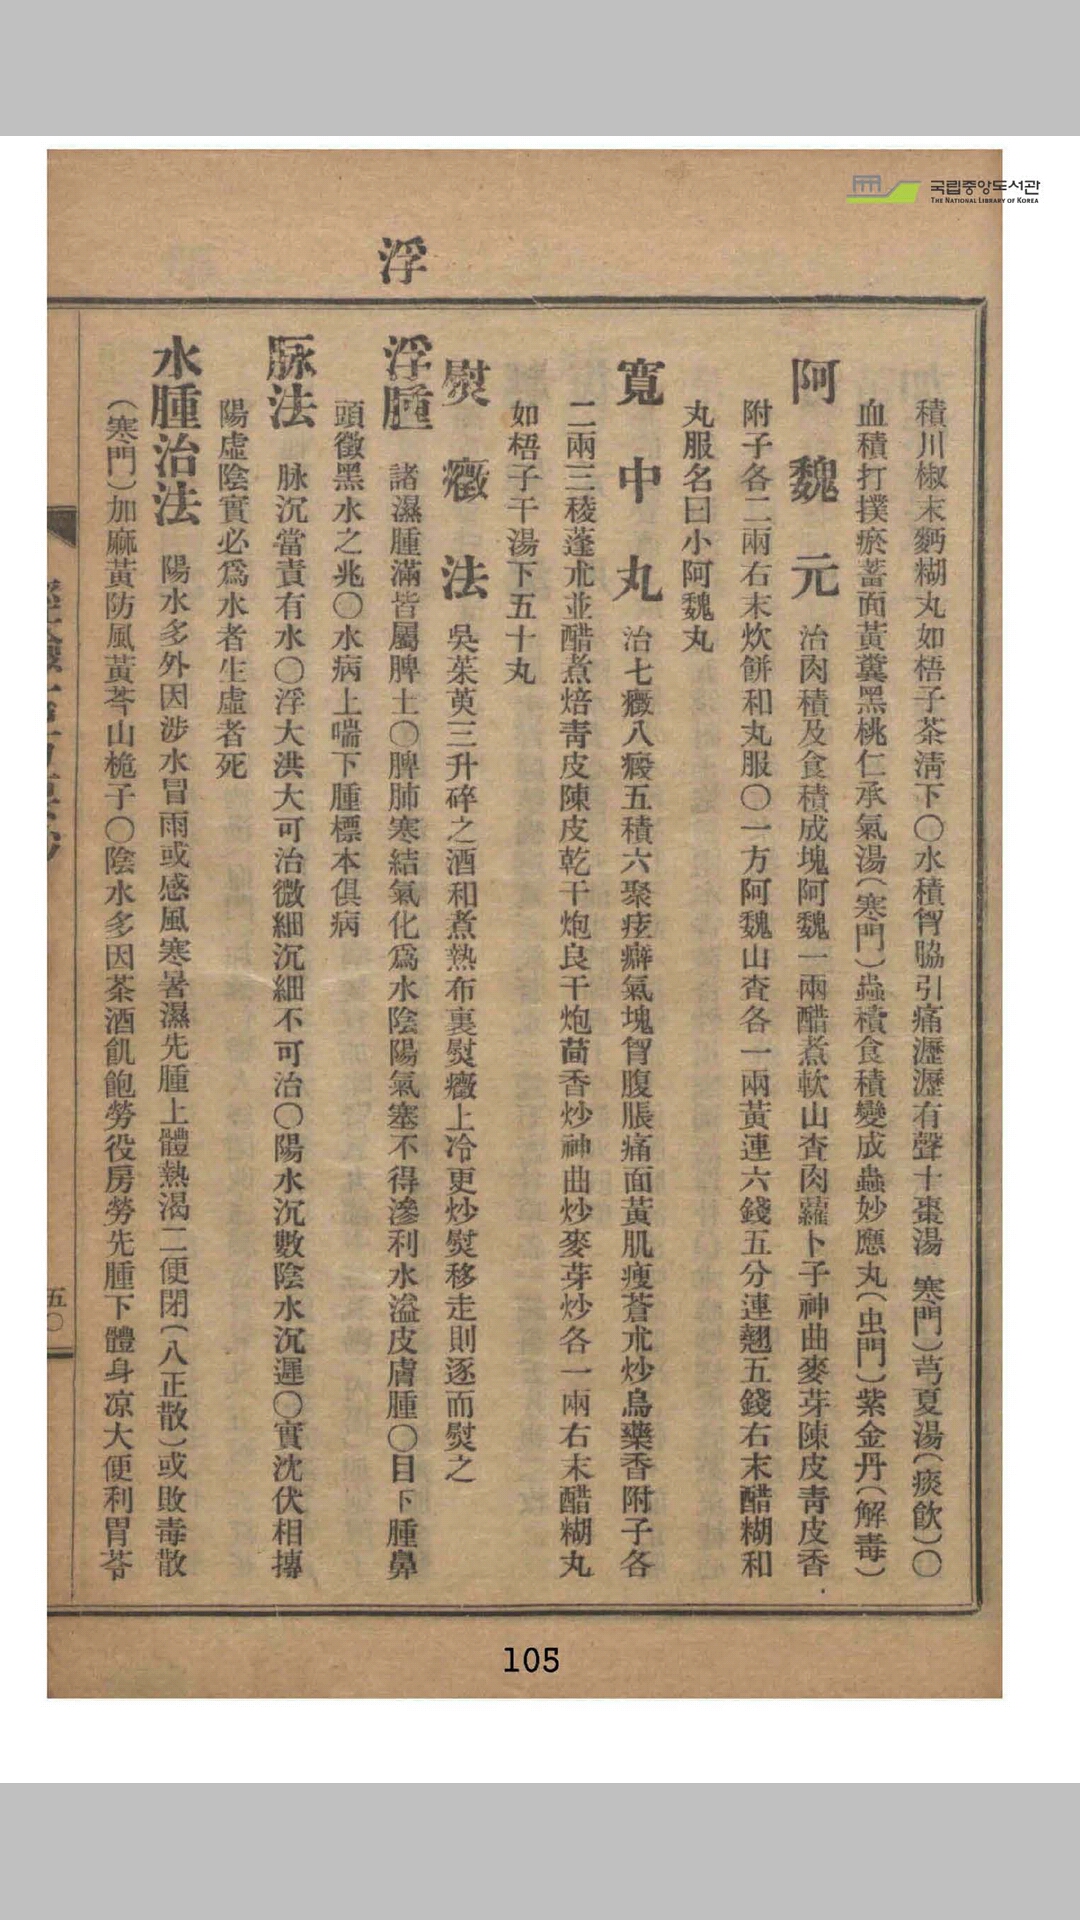 국립중앙도서관
THE NATIONAL LIBRARY OF KOREA
浮
積川椒末麪糊丸如梧子茶淸下〇水積胷脇引痛瀝瀝有聲十棗湯 寒門)芎夏湯(痰飮)〇
血積打撲瘀蓄面黃糞黑桃仁承氣湯(寒門)蟲積食積變成蟲妙應丸(虫門)紫金丹(解毒)
阿魏元 治肉積及食積成塊阿魏一兩醋煮軟山査肉蘿卜子神曲麥芽陳皮靑皮香
附子各二兩右末炊餠和丸服〇一方阿魏山査各一兩黃連六錢五分連翹五錢右末醋糊和
丸服名曰小阿魏丸
寬中丸 治七癥八瘕五積六聚痃癖氣塊胷腹脹痛面黃肌瘦蒼朮炒烏藥香附子各
二兩三稜蓬朮並醋煮焙靑皮陳皮乾干炮良干炮茴香炒神曲炒麥芽炒各一兩右末醋糊丸
如梧子干湯下五十丸
熨癥法 吳茱萸三升碎之酒和煮熱布裏熨癥上冷更炒熨移走則逐而熨之
浮腫 諸濕腫滿皆屬脾土〇脾肺寒結氣化爲水陰陽氣塞不得滲利水溢皮膚腫〇目下腫鼻
頭徵黑水之兆〇水病上喘下腫標本俱病
脈法 脉沉當責有水〇浮大洪大可治微細沉細不可治〇陽水沉數陰水沉遲〇實沈伏相搏
陽虛陰實必爲水者生虛者死
水腫治法 陽水多外因涉水冒雨或感風寒暑濕先腫上體熱渴二便閉(八正散)或敗毒散
(寒門)加麻黃防風黃芩山梔子〇陰水多因茶酒飢飽勞役房勞先腫下體身凉大便利胃苓
五〇
105